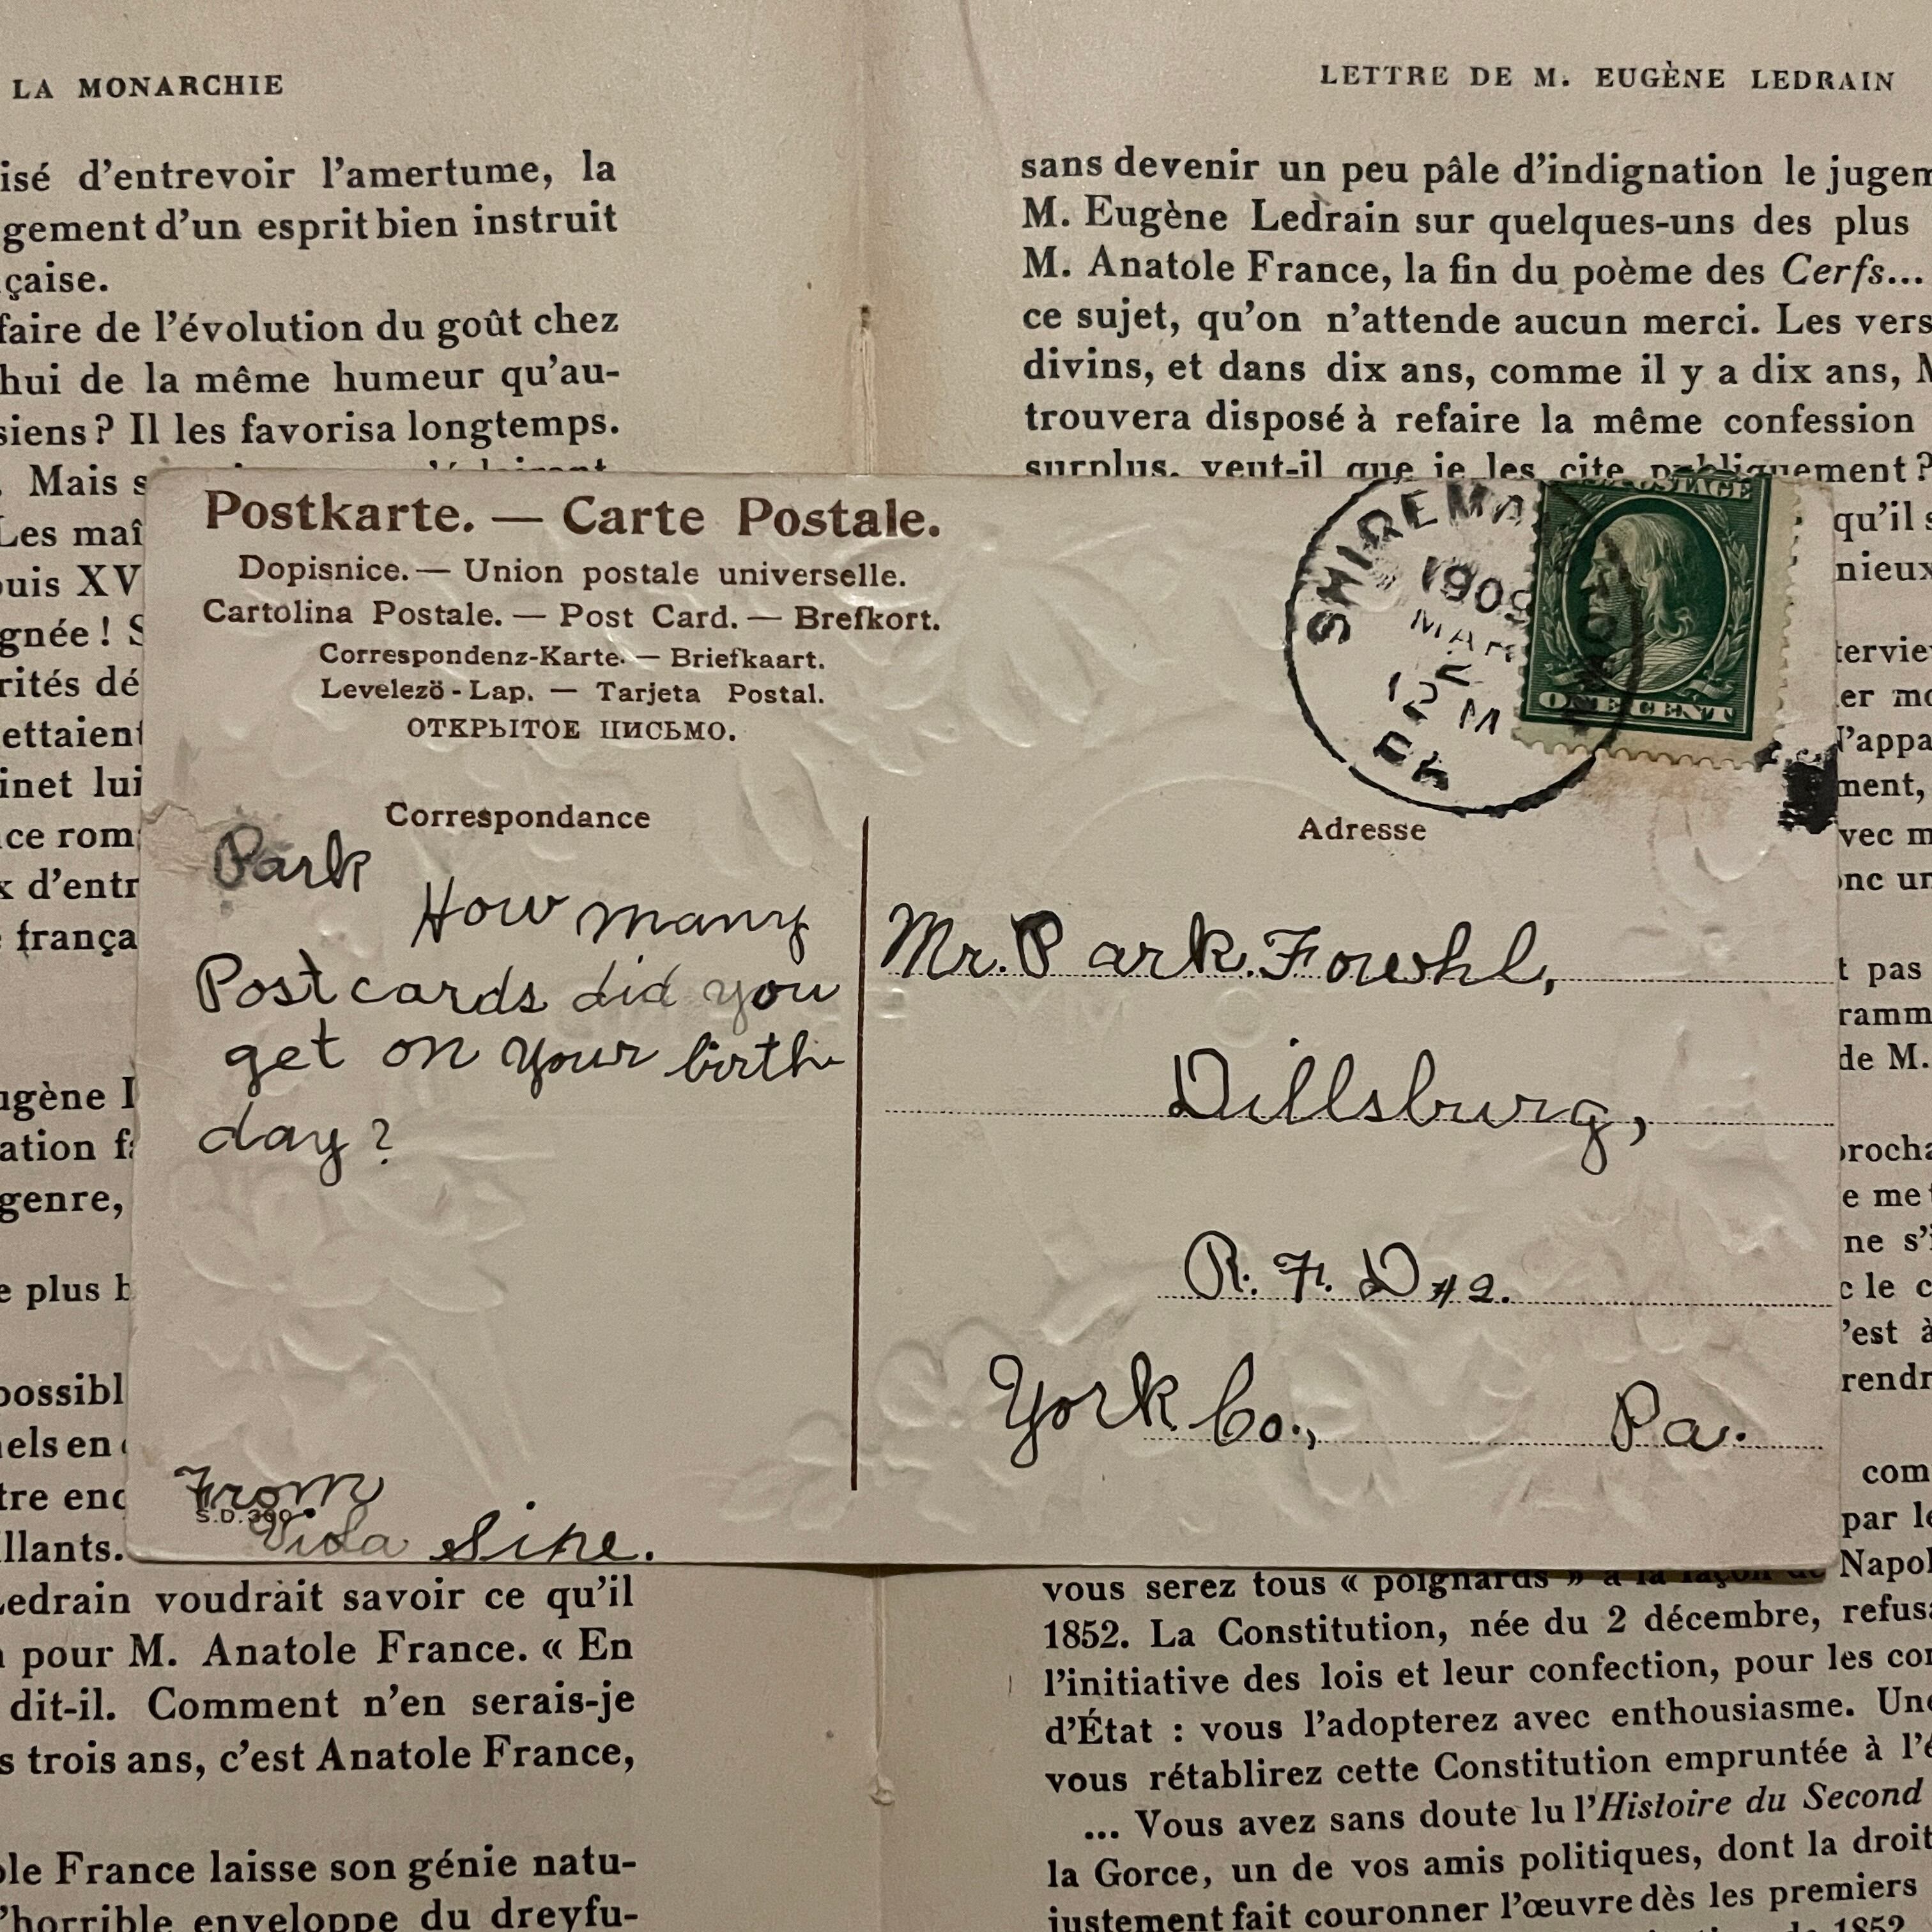 LA MONARCHIE
isé d'entrevoir l'amertume, la
gement d'un esprit bien instruit
çaise.
faire de l'évolution du goût chez
hui de la même humeur qu'au-
siens? Il les favorisa longtemps.
. Mais s
Les maî
ouis XV
gnée! S
rités dé
ettaient
inet lui
ce rom
x d'entr
françа
ugène L
ation fa
genre,
e plus b
possibl
els en
tre enc
llants.
Ledrain voudrait savoir ce qu'il
pour M. Anatole France. « En
dit-il. Comment n'en serais-je
s trois ans, c'est Anatole France,
ole France laisse son génie natu-
l'horrible enveloppe du dreyfu-
LETTRE DE M. EUGÈNE LEDRAIN
sans devenir un peu pâle d'indignation le jugem
M. Eugène Ledrain sur quelques-uns des plus
M. Anatole France, la fin du poème des Cerfs...
ce sujet, qu'on n'attende aucun merci. Les vers
divins, et dans dix ans, comme il y a dix ans, M
trouvera disposé à refaire la même confession
surplus, veut-il que je les cite publiquement?
qu'il s
nieux
tervie
er mo
N'appa
ment,
vec m
onc un
t pas
ramm
de M.
procha
e met
ne s'i
c le c
'est à
rendr
com
par le
Napol
vous serez tous « poignards » à la façon de
1852. La Constitution, née du 2 décembre, refusa
l'initiative des lois et leur confection, pour les con
d'État : vous l'adopterez avec enthousiasme. Une
vous rétablirez cette Constitution empruntée à l'é
... Vous avez sans doute lu l'Histoire du Second
la Gorce, un de vos amis politiques, dont la droit
justement fait couronner l'œuvre dès les premiers
1852
Postkarte. — Carte Postale.
Dopisnice. — Union postale universelle.
Cartolina Postale. — Post Card. — Brefkort.
Correspondenz-Karte. — Briefkaart.
Levelező-Lap. — Tarjeta Postal.
ОТКРЫТОЕ ПИСЬМО.
SHIREMA
1909
MAR
12 M
PA
POSTAGE
ONE CENT
Correspondance
Adresse
Park
How many
Post cards did you
get on your birth
day?
From
S.D. 390
Viola Sine.
Mr. Park. Fowhl,
Dillsburg,
R. F. D #2.
York Co., Pa.